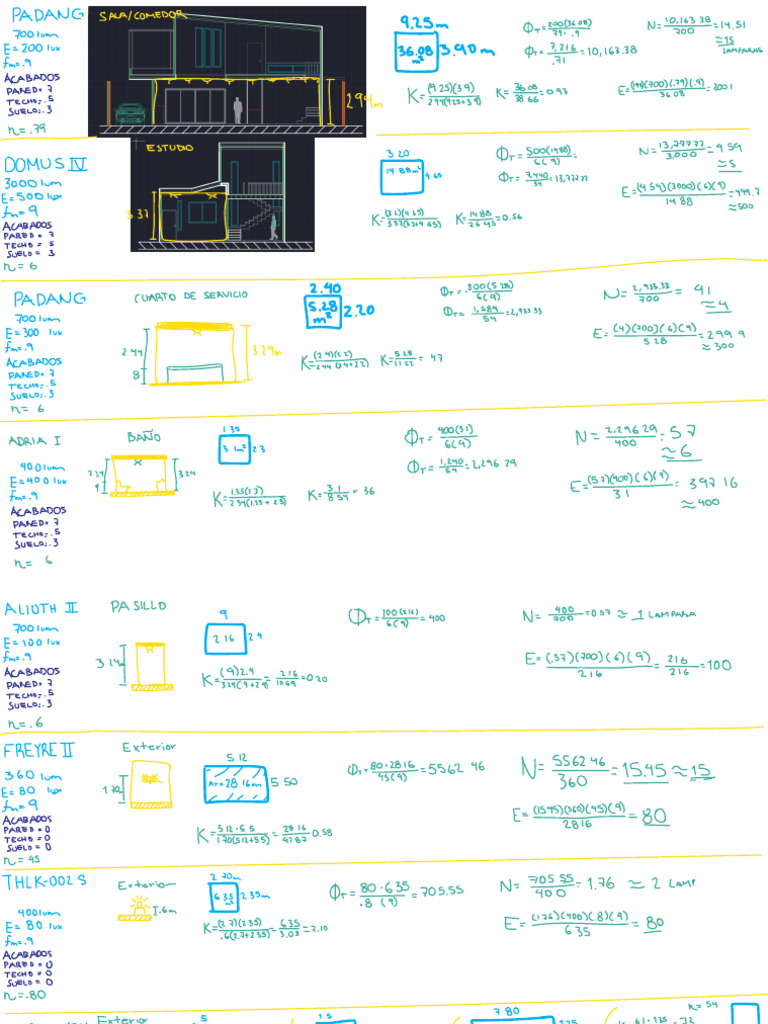 PADANG
700 lum
E= 200 lux
fm=.9
ACABADOS
PARED= 7
TECHO=.5
SUELO=.3
n=.79
SALA/COMEDOR
2.94m
9.25m
36.08 m²
3.90m
K= (9.25)(3.9) / 2.94(9.25+3.9)
K= 36.08 / 38.66 = 0.93
ΦT= 200(36.08) / .79 · .9
ΦT= 7,216 / .71 = 10,163.38
N= 10,163.38 / 700 = 14.51
≈ 15 LAMPARAS
DOMUS IV
3000 lum
E= 500 lux
fm= 9
ACABADOS
PARED= 7
TECHO = 5
SUELO = 3
n= 6
ESTUDIO
3.20
14 88m²
4.65
ΦT= 500(14.88) / 6(9) =
ΦT= 7,440 / 54 = 13,777.77
N= 13,777.77 / 3,000 = 4 59
≈ 5
E= (4 59)(3000)(6)(9) / 14 88 = 499.7
≈500
K= 14.88 / 26.45 = 0.56
PADANG
700 lum
E= 300 lux
fm=.9
ACABADOS
PARED= 7
TECHO=.5
SUELO=.3
n= 6
CUARTO DE SERVICIO
2 44
8
3.24m
2.40
5.28 m²
2.20
K= 5.28 / 11.22 = 47
ΦT= 300(5.28) / 6(9)
ΦT= 1,584 / 54 = 2,933.33
N= 2,933.33 / 700 = 41
≈ 4
E= (4)(700)(6)(9) / 5 28 = 299 9
≈ 300
ADRIA I
400 lum
E= 400 lux
fm=.9
ACABADOS
PARED= 7
TECHO=.5
SUELO=.3
n= 6
BAÑO
2 34
9
3 24
1 35
3.1m²
2 3
K= 3 1 / 8 54 = 36
ΦT= 400(3 1) / 6(9)
ΦT= 1,240 / 54 = 2,296 29
N= 2,296 29 / 400 = 5 7
≈ 6
E= (5.7)(400)(6)(9) / 3 1 = 397 16
≈ 400
ALIOTH II
700 lum
E= 100 lux
fm=.9
ACABADOS
PARED= 7
TECHO=.5
SUELO=.3
n=.6
PASILLO
3 24
9
2 16
2 4
K= (9)2.4 / 3.24(9+2.4) = 2.16 / 10.69 = 0.20
ΦT= 100(2.16) / 6(9) = 400
N= 400 / 700 = 0.57 ≈ 1 LAMPARA
E= (.57)(700)(6)(9) / 2 16 = 216 / 2 16 = 100
FREYRE II
360 lum
E= 80 lux
fm= 9
ACABADOS
PARED = 0
TECHO = 0
SUELO = 0
n= 45
Exterior
1.70
5 12
AT= 28 16m
5 50
K= 5 12 · 5 5 / 1.70(5 12+5 5) = 28 16 / 47 87 = 0.58
ΦT= 80 · 28 16 / 45(9) = 5562 46
N= 5562 46 / 360 = 15.45 ≈ 15
E= (15 45)(360)(45)(9) / 28 16 = 80
THLK-002 S
400 lum
E= 80 lux
fm=.9
ACABADOS
PARED = 0
TECHO = 0
SUELO = 0
n=.80
Exterior
.6m
2.70m
6 35 m²
2 35m
K= (2.7)(2 35) / .6(2.7+2 35) = 6 35 / 3.03 = 2.10
ΦT= 80 · 6 35 / .8 (9) = 705.55
N= 705 55 / 400 = 1.76 ≈ 2 LAMP
E= (1.76)(400)(.8)(9) / 6 35 = 80
Exterior
5
1 5
7 80
n= 54